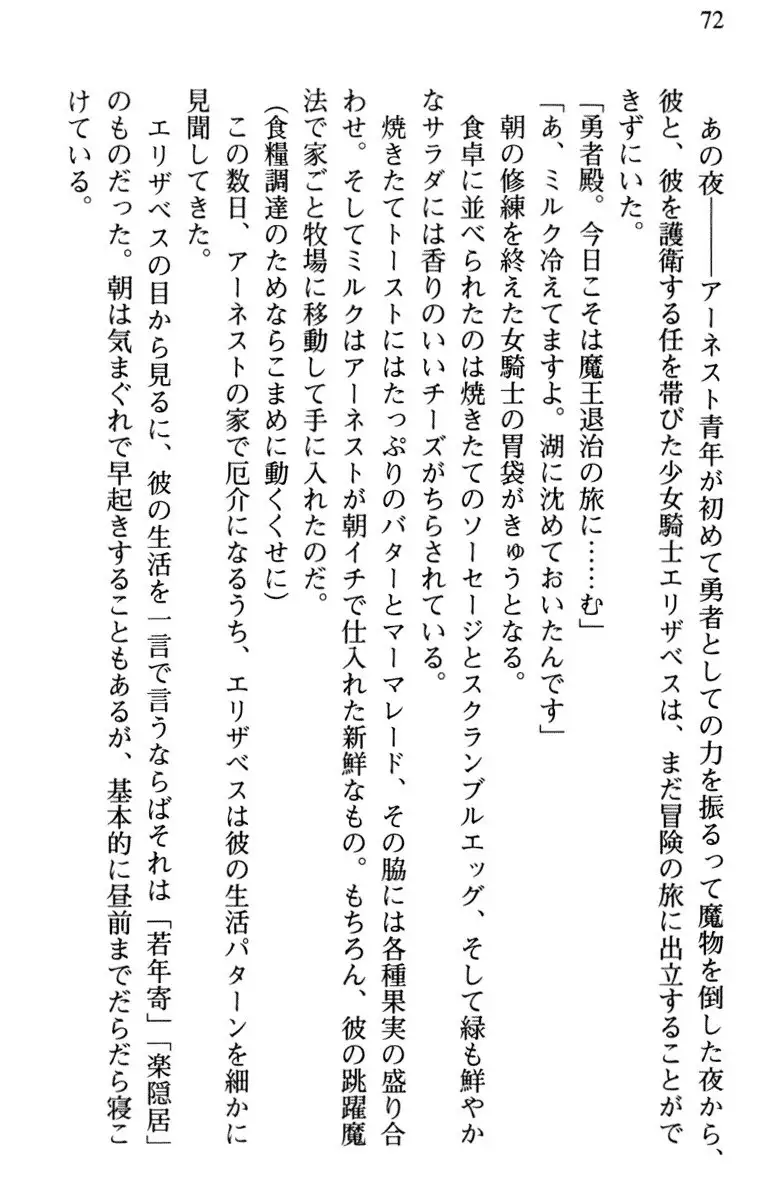 72
あの夜――アーネスト青年が初めて勇者としての力を振るって魔物を倒した夜から、
彼と、彼を護衛する任を帯びた少女騎士エリザベスは、まだ冒険の旅に出立することがで
きずにいた。
「勇者殿。今日こそは魔王退治の旅に……む」
「あ、ミルク冷えてますよ。湖に沈めておいたんです」
朝の修練を終えた女騎士の胃袋がきゅうとなる。
食卓に並べられたのは焼きたてのソーセージとスクランブルエッグ、そして緑も鮮やか
なサラダには香りのいいチーズがちらされている。
焼きたてトーストにはたっぷりのバターとマーマレード、その脇には各種果実の盛り合
わせ。そしてミルクはアーネストが朝イチで仕入れた新鮮なもの。もちろん、彼の跳躍魔
法で家ごと牧場に移動して手に入れたのだ。
（食糧調達のためならこまめに動くくせに）
この数日、アーネストの家で厄介になるうち、エリザベスは彼の生活パターンを細かに
見聞してきた。
エリザベスの目から見るに、彼の生活を一言で言うならばそれは「若年寄」「楽隠居」
のものだった。朝は気まぐれで早起きすることもあるが、基本的に昼前までだらだら寝こ
けている。